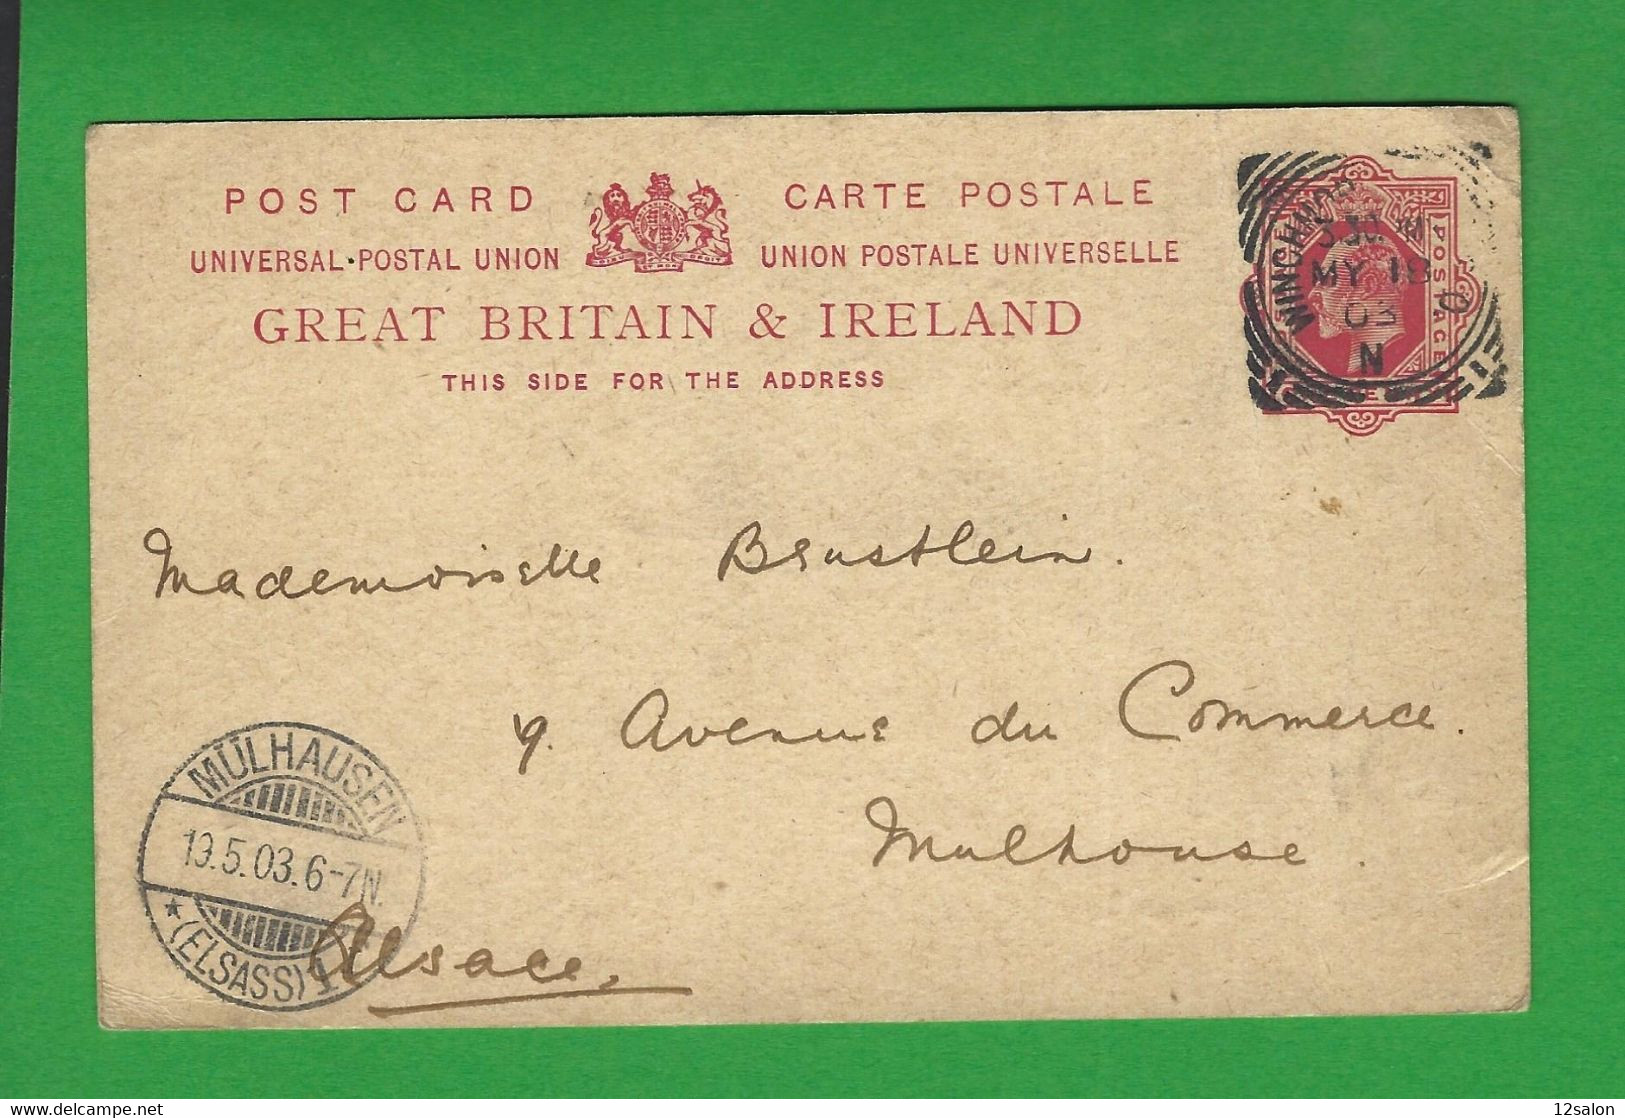 POST CARD CARTE POSTALE
UNIVERSAL POSTAL UNION UNION POSTALE UNIVERSELLE
GREAT BRITAIN & IRELAND
THIS SIDE FOR THE ADDRESS
POSTAGE
MY 18
03
N
Mademoiselle Brustlein.
9. Avenue du Commerce.
Mulhouse.
Alsace.
MÜLHAUSEN
19.5.03.6-7N.
*(ELSASS)1
www.delcampe.net
12salon